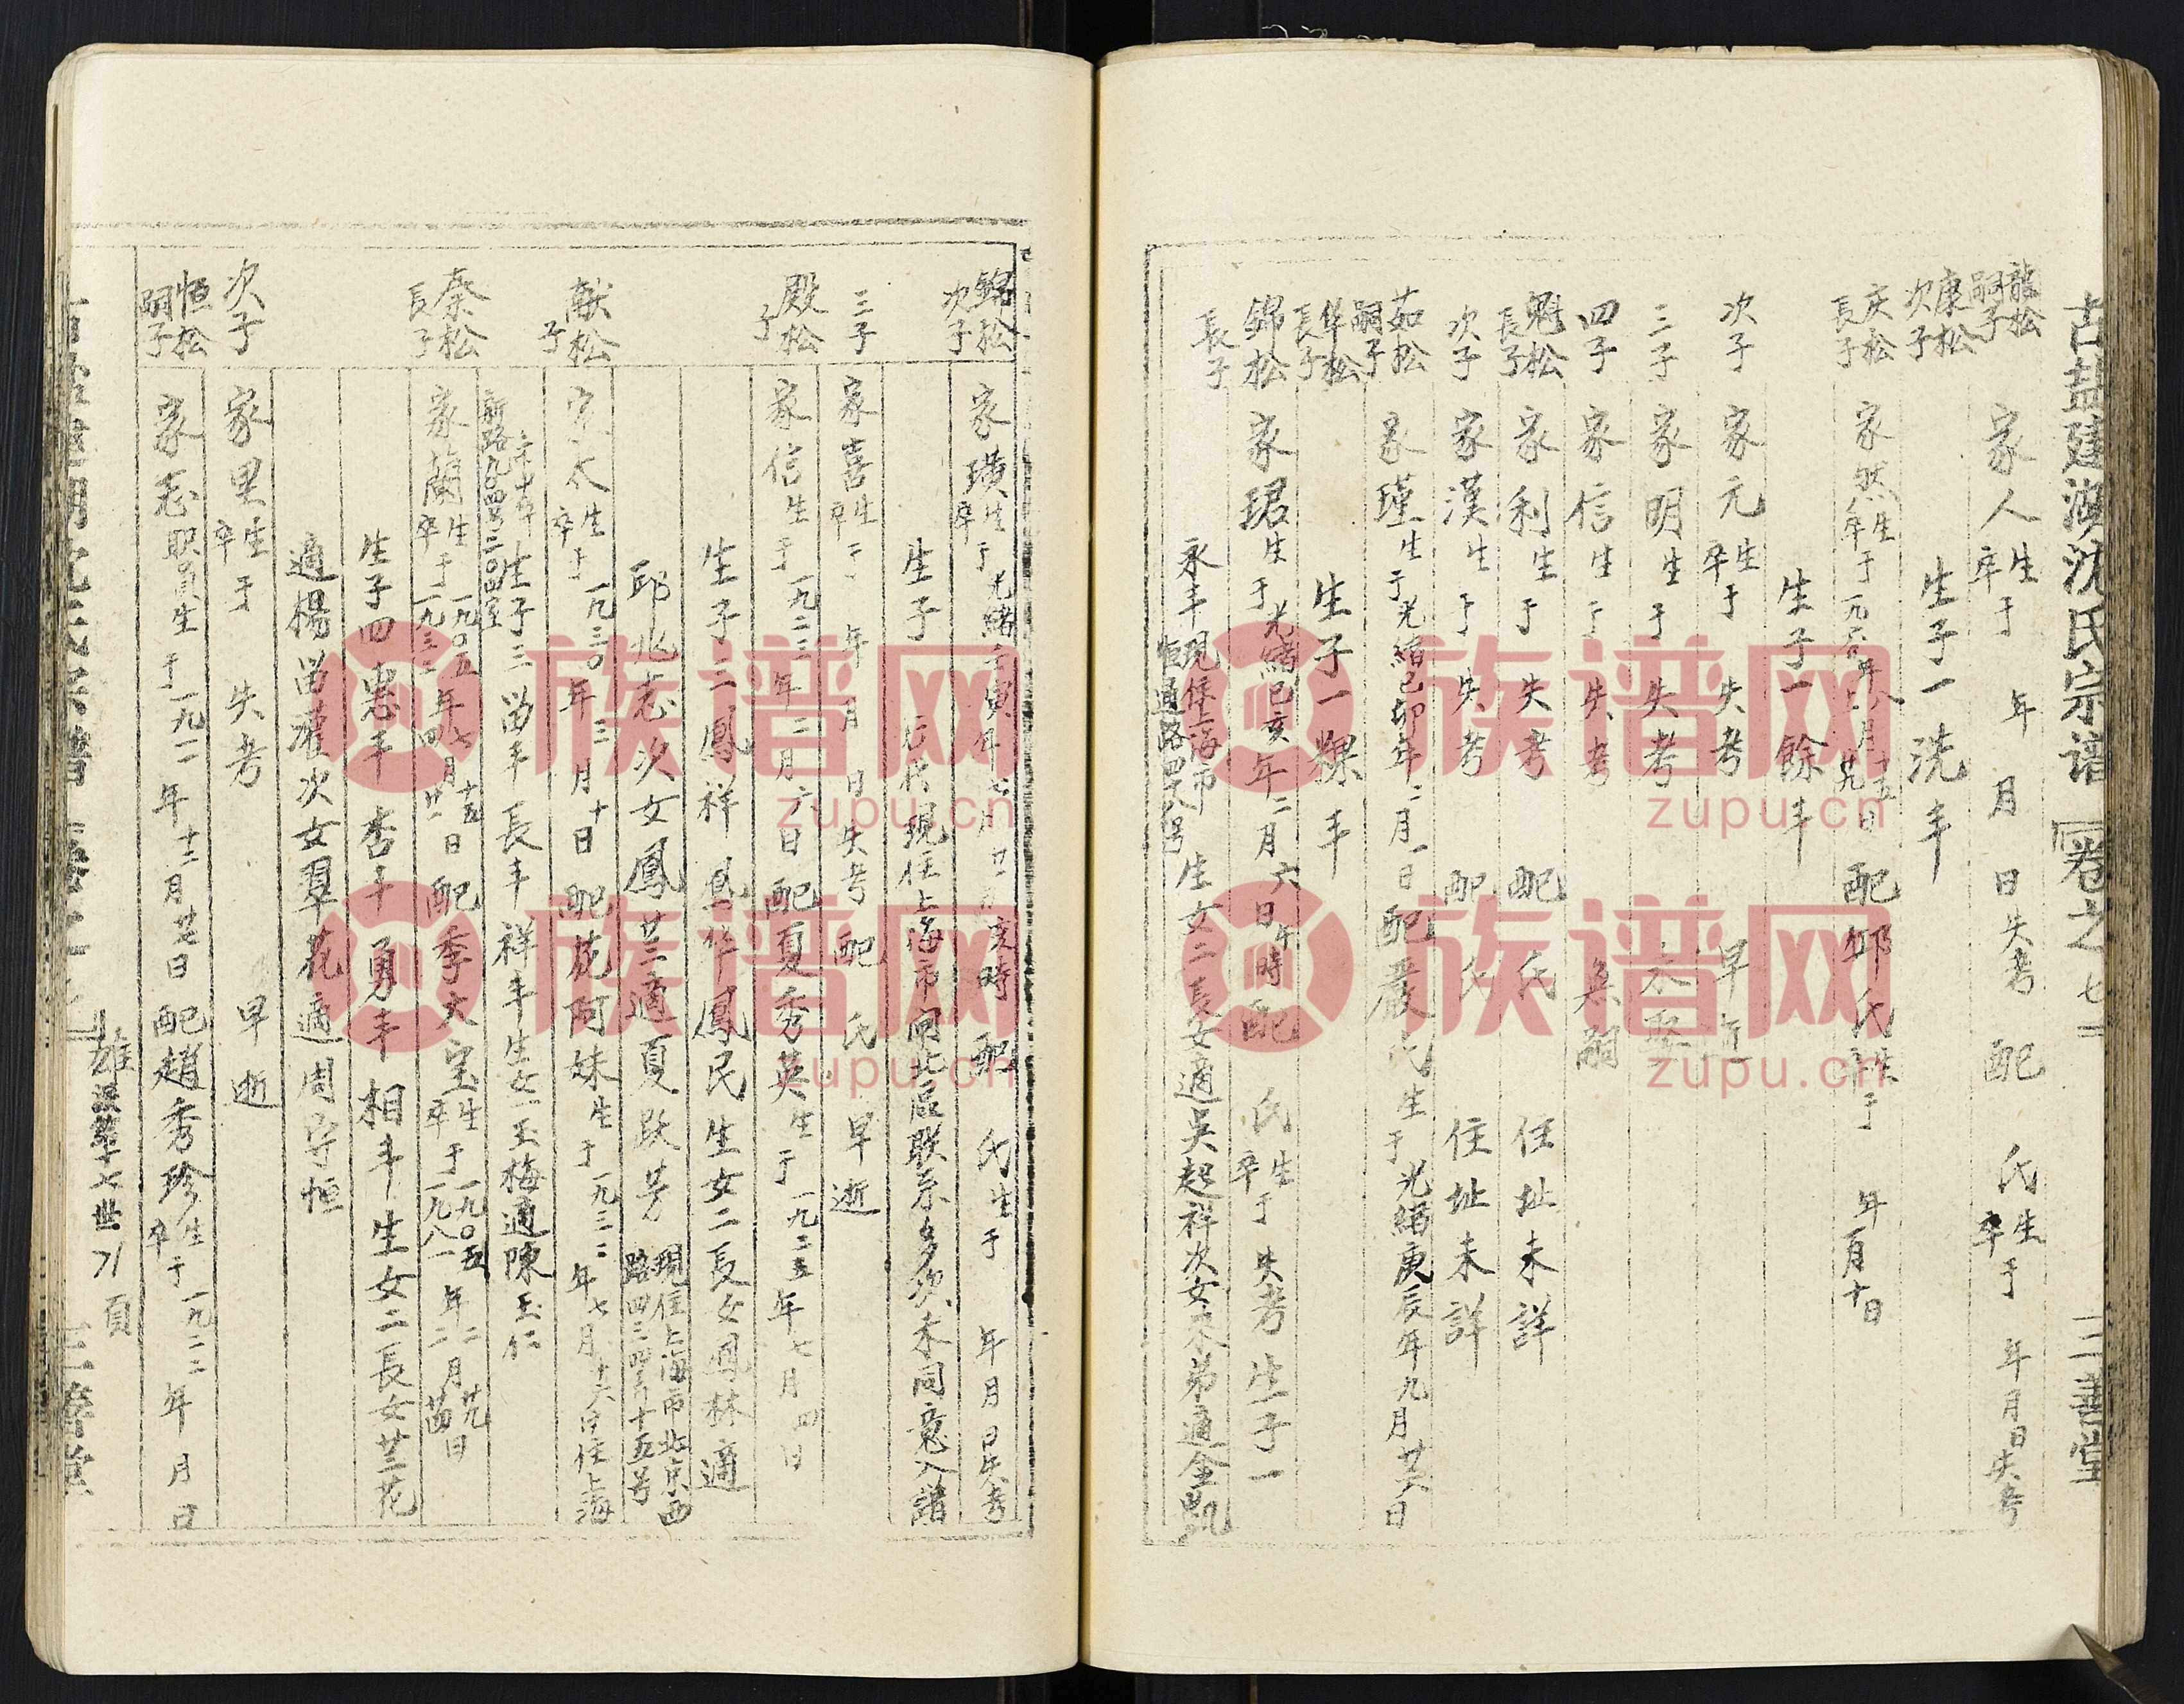 古盐建湖沈氏宗谱 卷之七 三善堂
龍松嗣子 家人 生卒于 年 月 日失考 配 氏 生卒于 年月日失考
康松次子 生子一洗丰
庆松長子 家然 生卒于 配邱氏 生卒于 年 月十日
生子一餘丰
次子 家元 生卒于 失考 早
三子 家明 生于 失考 未娶
四子 家信 生于 失考 無嗣
魁松長子 家利 生于 失考 配 氏 住址未詳
次子 家漢 生于 失考 配 氏 住址未詳
茹松嗣子 家瑾 生于光緒己卯年二月一日 配嚴氏 生于光緒庚辰年九月廿六日
华松長子 生子一 丰
錦松長子 家珺 生于光緒己亥年二月六日午時 配 氏 生卒于失考 生子一
永丰 現住上海市恒通路四十八号 生女二 長女適吳起祥 次女 弟適金凱
錦松次子 家璜 生卒于光緒 寅年七月廿 亥時 配 氏 生于 年月日失考
生子 后代現住上海市闸北區联系多次未同意入譜
三子 家喜 生卒于 年 月 日失考 配 氏 早逝
殿松子 家信 生于一九二三年二月六日 配夏秀英 生于一九二五年七月四日
生子三 鳳祥 鳳华 鳳民 生女二 長女鳳林適
邱兆志 次女鳳兰適夏跃芳 現住上海市北京西路四三四弄十五号
献松子 家太 生卒于一九三〇年三月十日 配花阿妹 生于一九三二年七月十六日 住上海
新路九〇四号二〇四室 生子三 留丰 長丰 祥丰 生女一玉梅適陳玉仁
泰松長子 家蘭 生卒于一九〇五年七月十五日 一九三二 四 廿 配季大宝 生卒于一九〇五年二月廿九日 一九八一 二
生子四 惠丰 杏丰 勇丰 相丰 生女二 長女兰花
適楊留灌 次女翠花適周守恒
次子 家里 生卒于 失考 早逝
恒松嗣子 家志 职员 生于一九二一年十二月廿七日 配趙秀珍 生卒于一九二二年 月 日
雄 十七世 71頁
三善堂
族谱网
zupu.cn
族谱网
zupu.cn
族谱网
zupu.cn
族谱网
zupu.cn